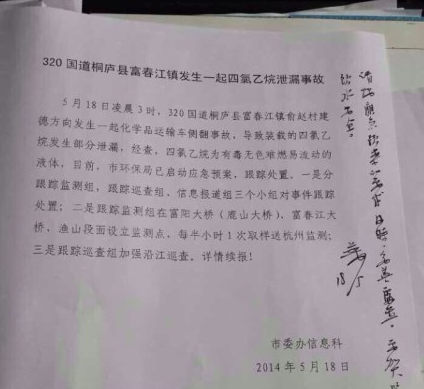 320 国道桐庐县富春江镇发生一起四氯乙烷泄漏事故
5 月 18 日凌晨 3 时，320 国道桐庐县富春江镇俞赵村建
德方向发生一起化学品运输车侧翻事故，导致装载的四氯乙
烷发生部分泄漏，经查，四氯乙烷为有毒无色难燃易流动的
液体，目前，市环保局已启动应急预案，跟踪处置，一是分
跟踪监测组、跟踪巡查组、信息报道组三个小组对事件跟踪
处置；二是跟踪监测组在富阳大桥（鹿山大桥）、富春江大
桥、渔山段面设立监测点，每半小时 1 次取样送杭州监测；
三是跟踪巡查组加强沿江巡查。详情续报！
市委办信息科
2014 年 5 月 18 日
18/5